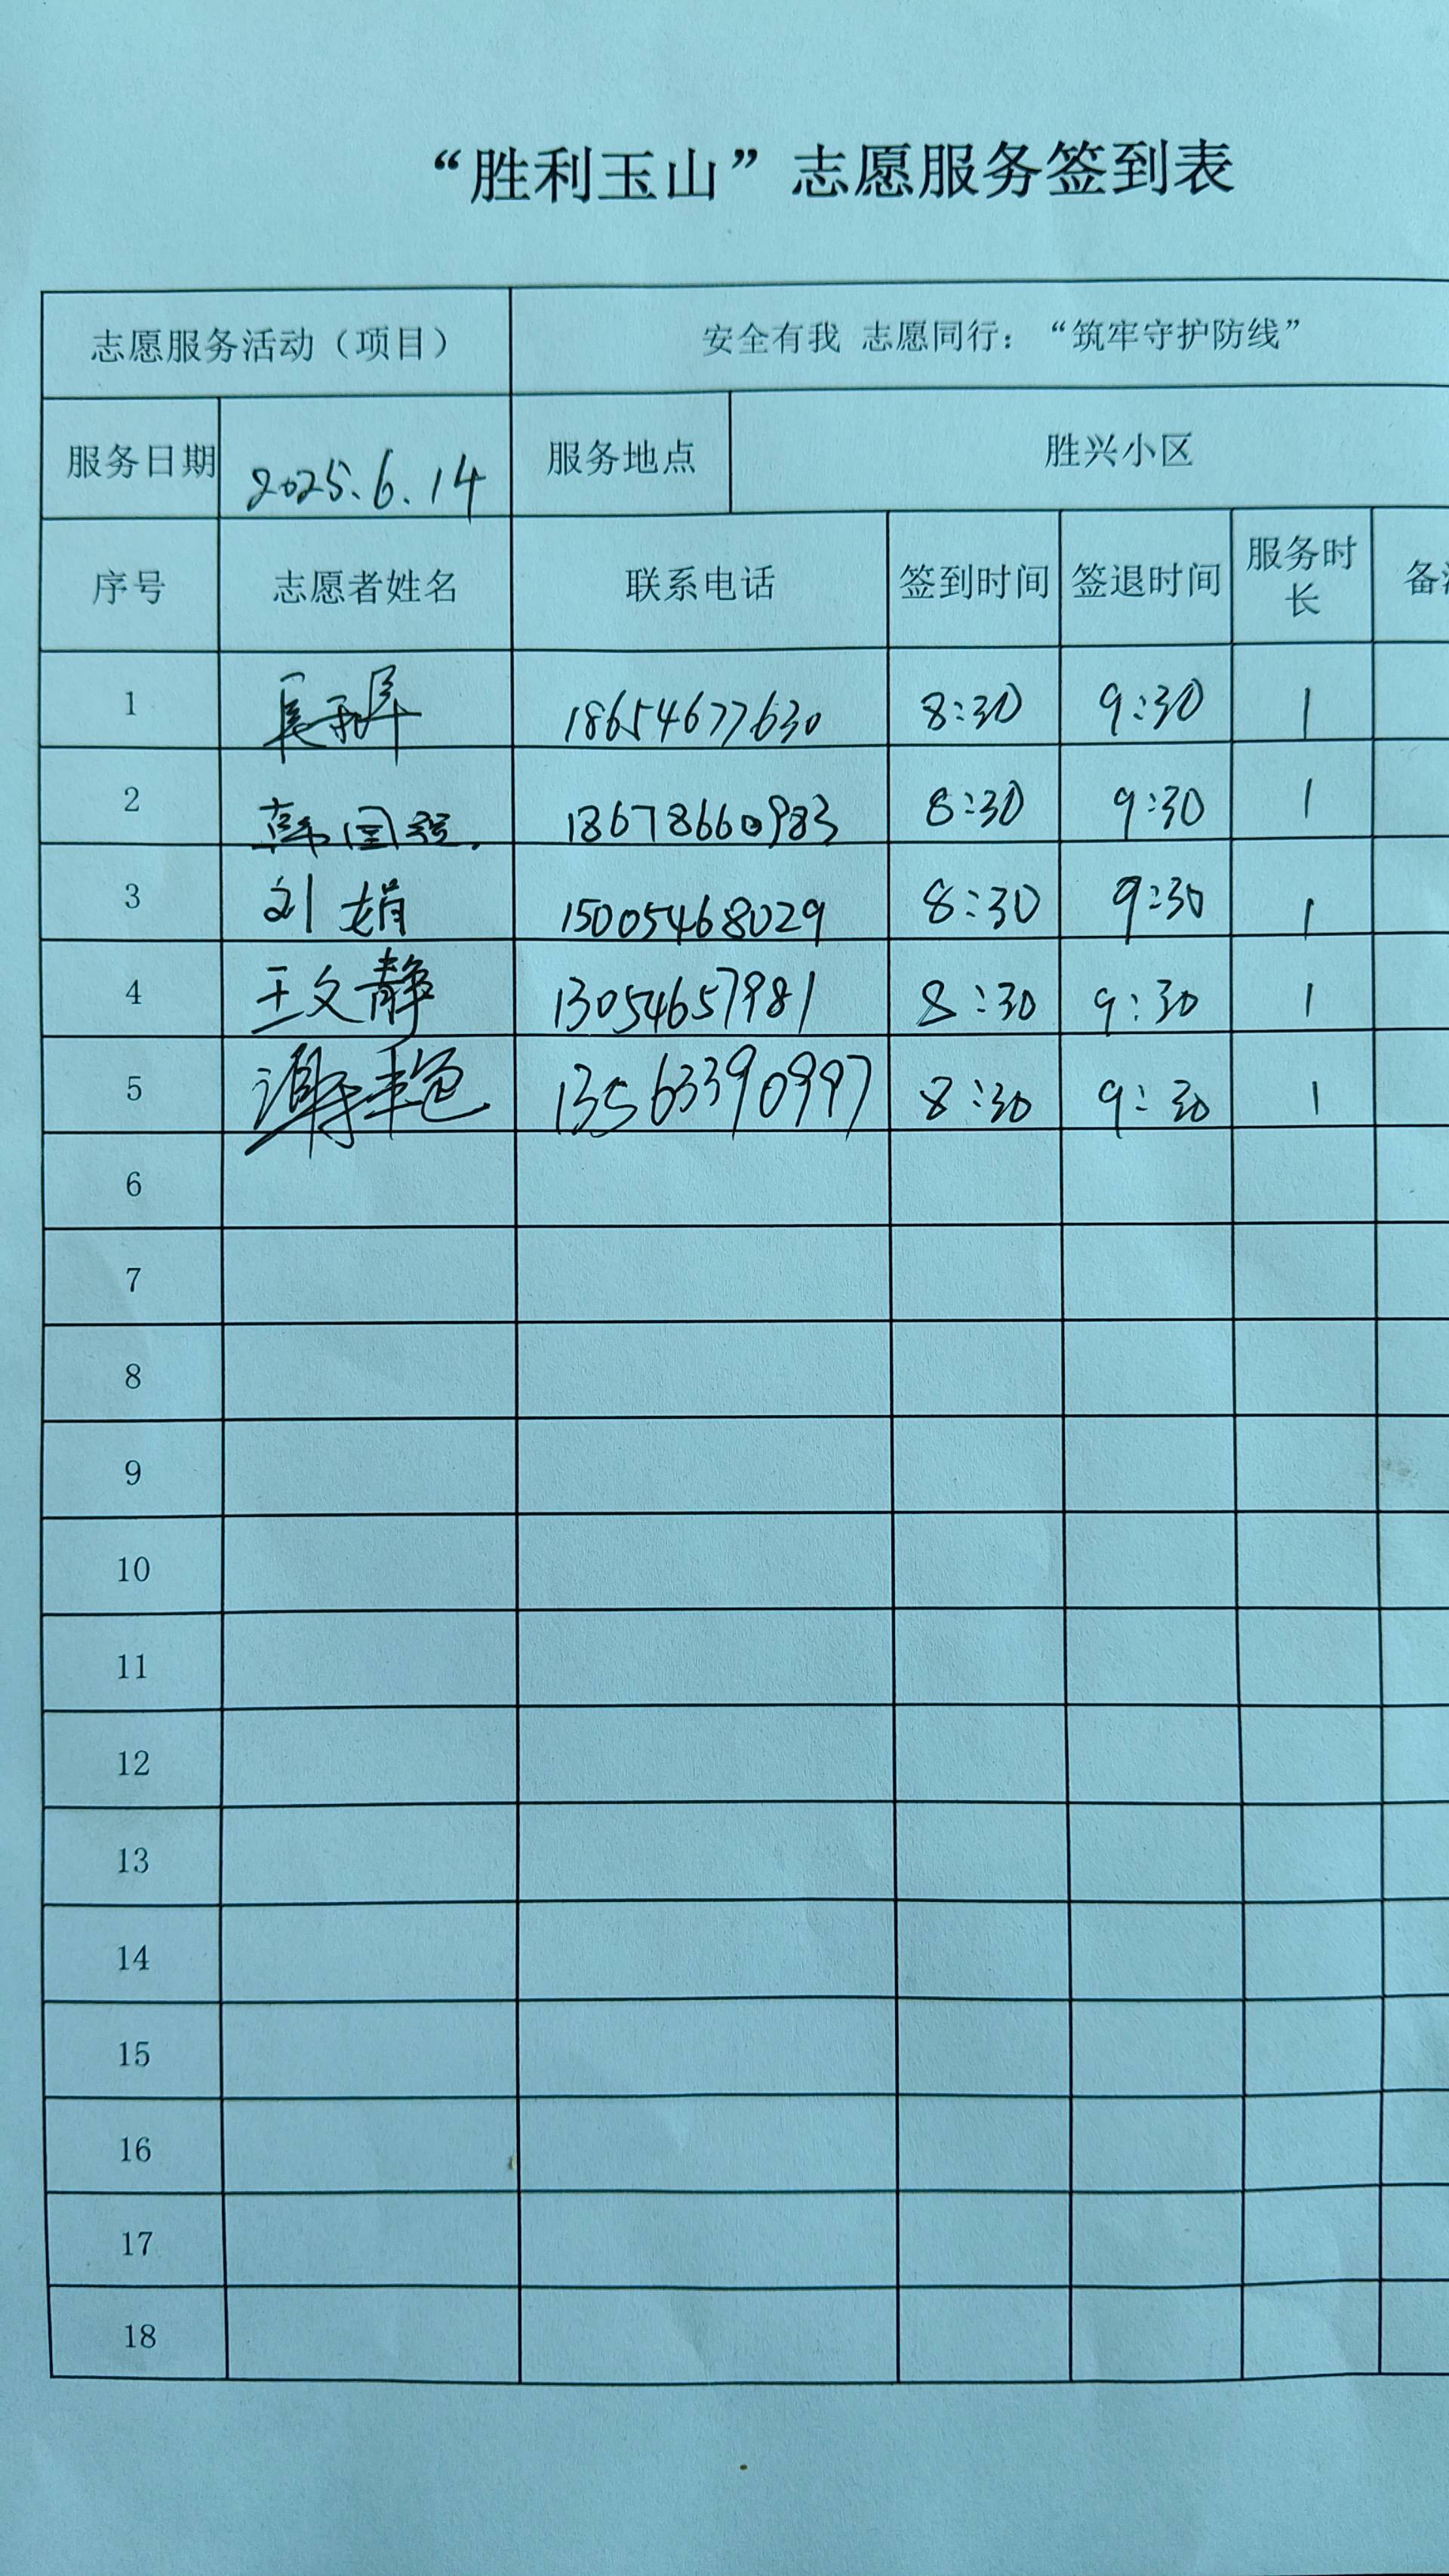 “胜利玉山”志愿服务签到表
志愿服务活动（项目） 安全有我 志愿同行：“筑牢守护防线”
服务日期 2025.6.14 服务地点 胜兴小区
序号 志愿者姓名 联系电话 签到时间 签退时间 服务时长 备
1 18654677630 8:30 9:30 1
2 韩国强. 18678660983 8:30 9:30 1
3 刘娟 15005468029 8:30 9:30 1
4 王文静 13054657981 8:30 9:30 1
5 谢丰艳 13563390997 8:30 9:30 1
6
7
8
9
10
11
12
13
14
15
16
17
18